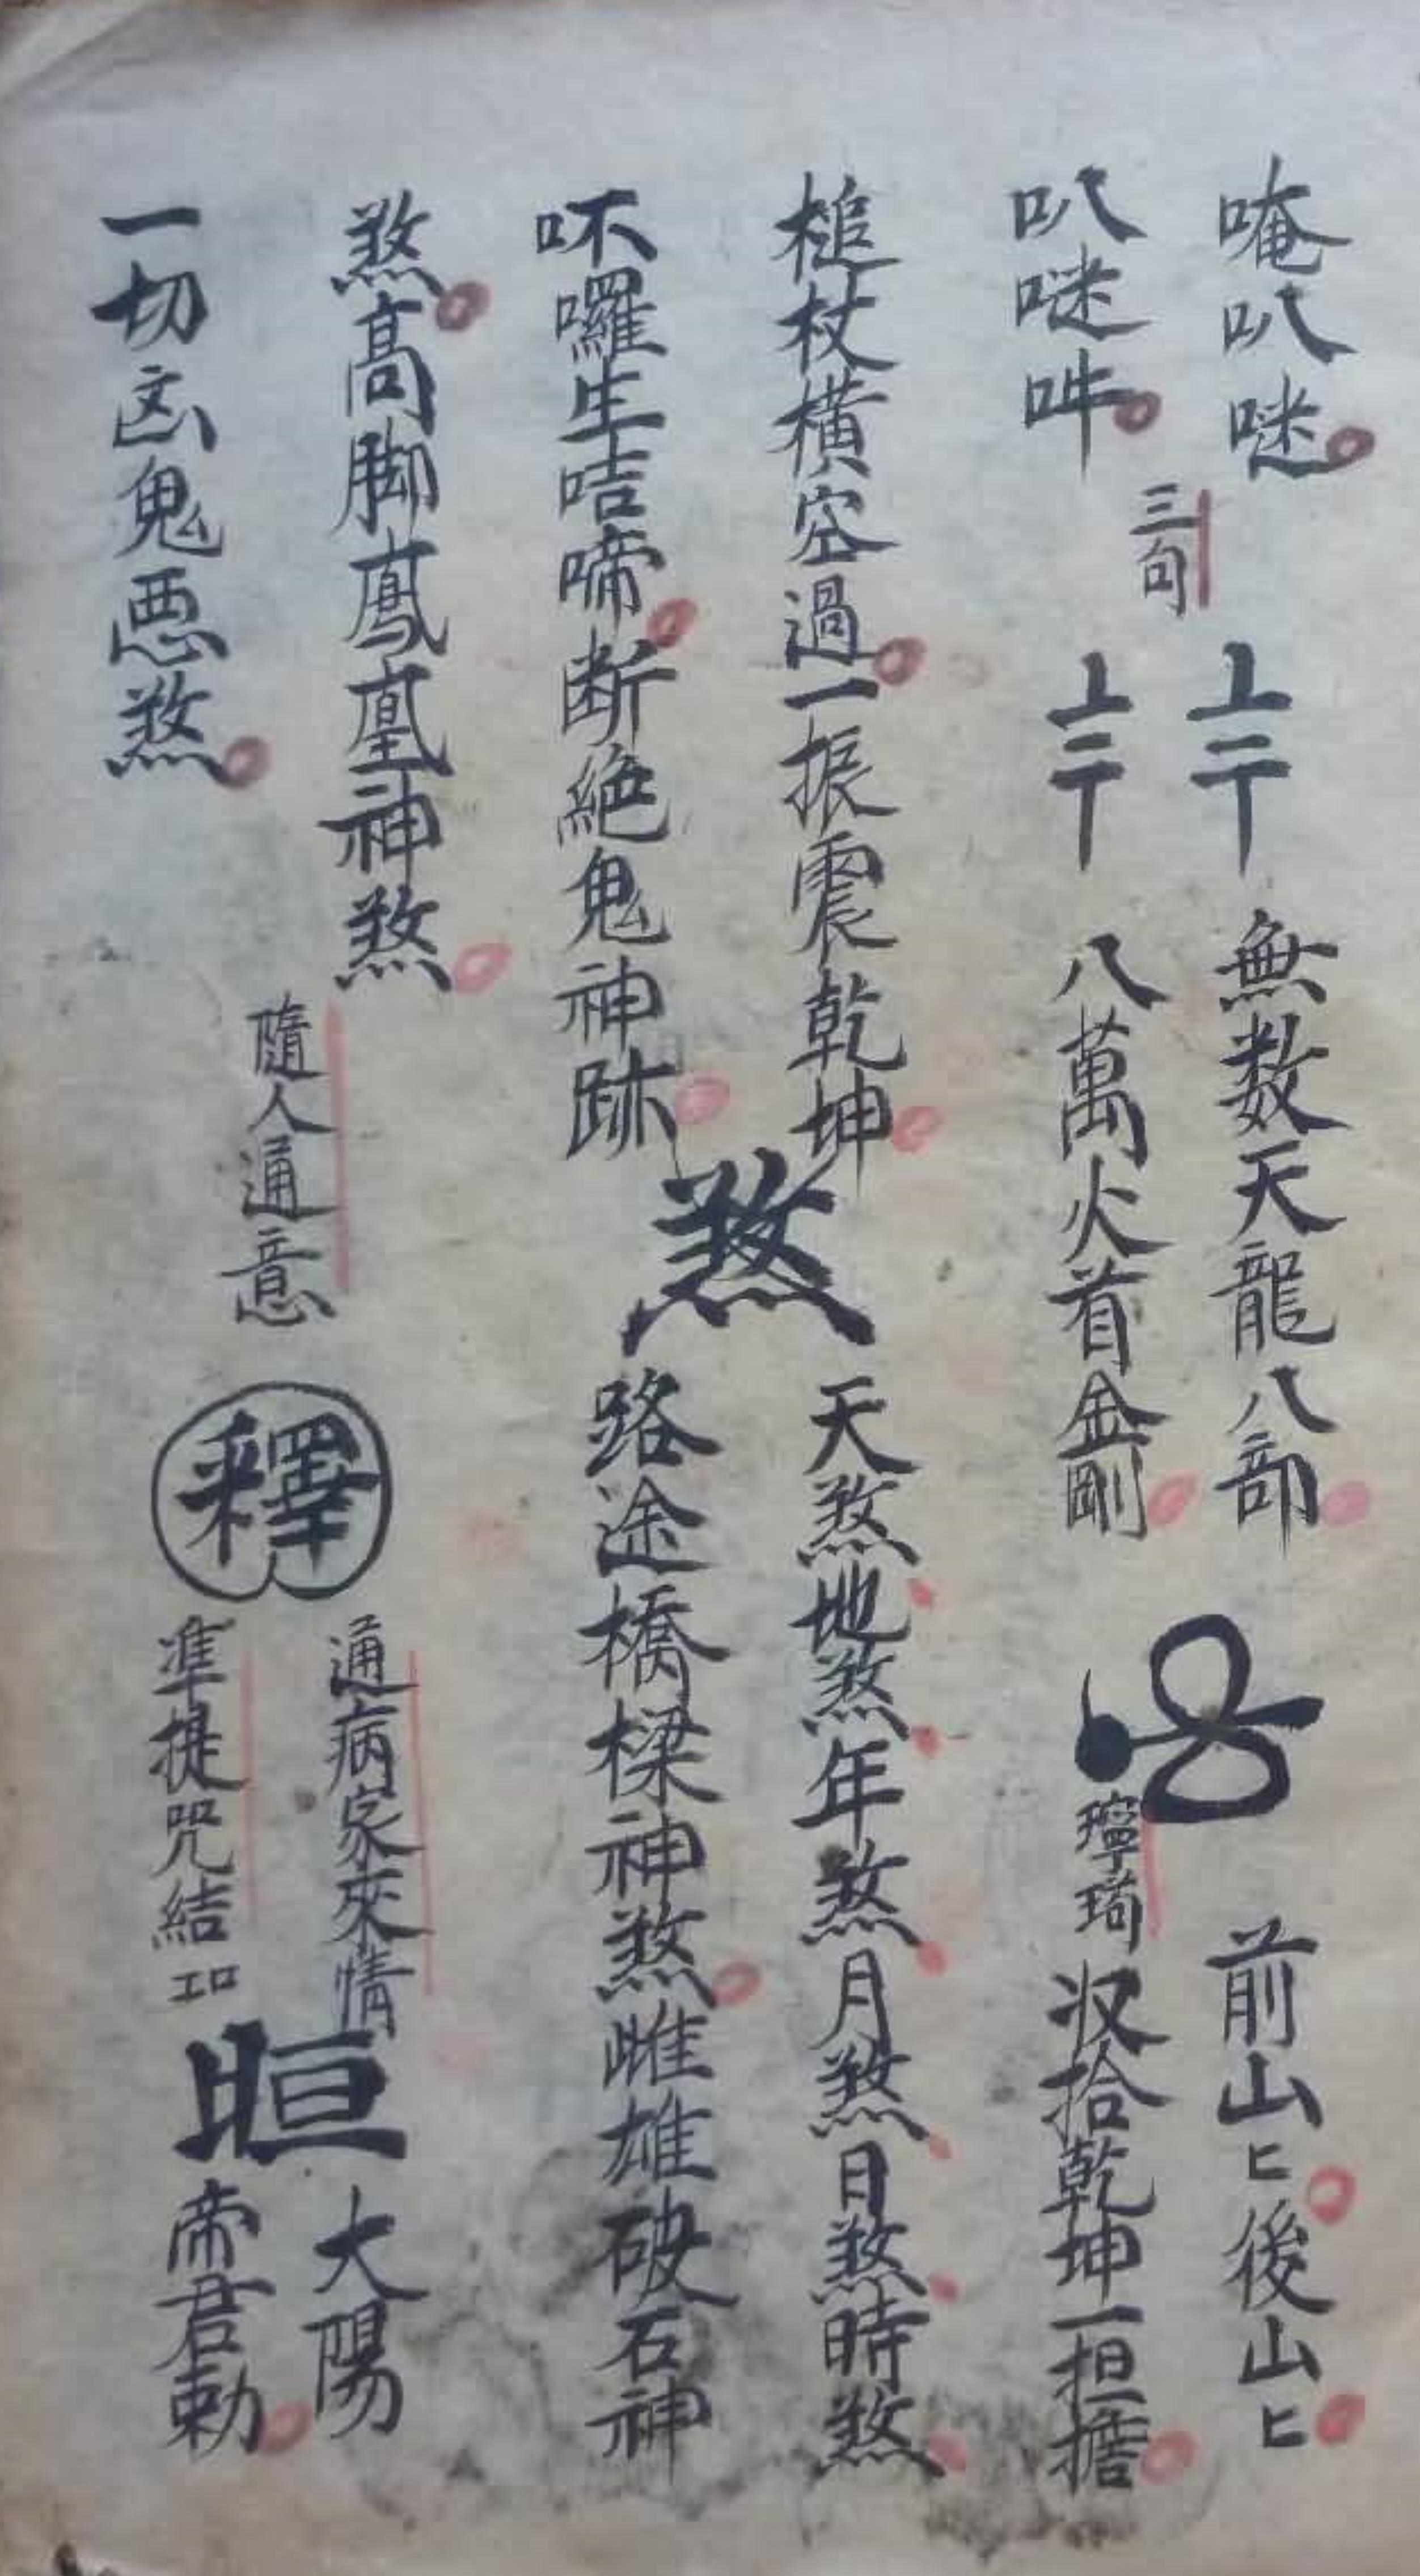 唵叭㖷
叭㖷吽
三句
上二丅
上二丅
無数天龍八部
八萬火首金剛
前山匕後山匕
璾琦
収拾乾坤一担擔
槌杖橫空過一振震乾坤
吥囉生咭啼断絕鬼神跡
煞
天煞地煞年煞月煞日煞時煞
路途橋樑神煞雌雄破石神
煞高脚鳳凰神煞
一切凶鬼悪煞
隨人通意
釋
通病家來情
準提咒結
大陽
帝君勅